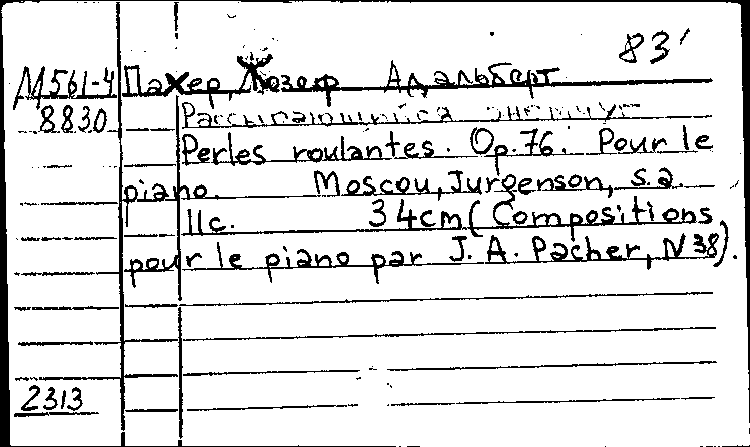 83'
М561-4 Пахер, Жозеф Адальберт
8830 Рассыпающийся жемчуг
Perles roulantes. Op.76. Pour le
piano. Moscou, Jurgenson, s.a.
11c. 34cm (Compositions
pour le piano par J. A. Pacher, N38).
2313